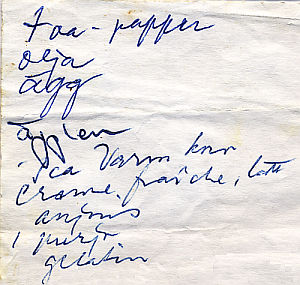 toa-papper
olja
ägg
äpplen
Ica Varm korv
creme fraîche, lätt
1 purjo
gelatin